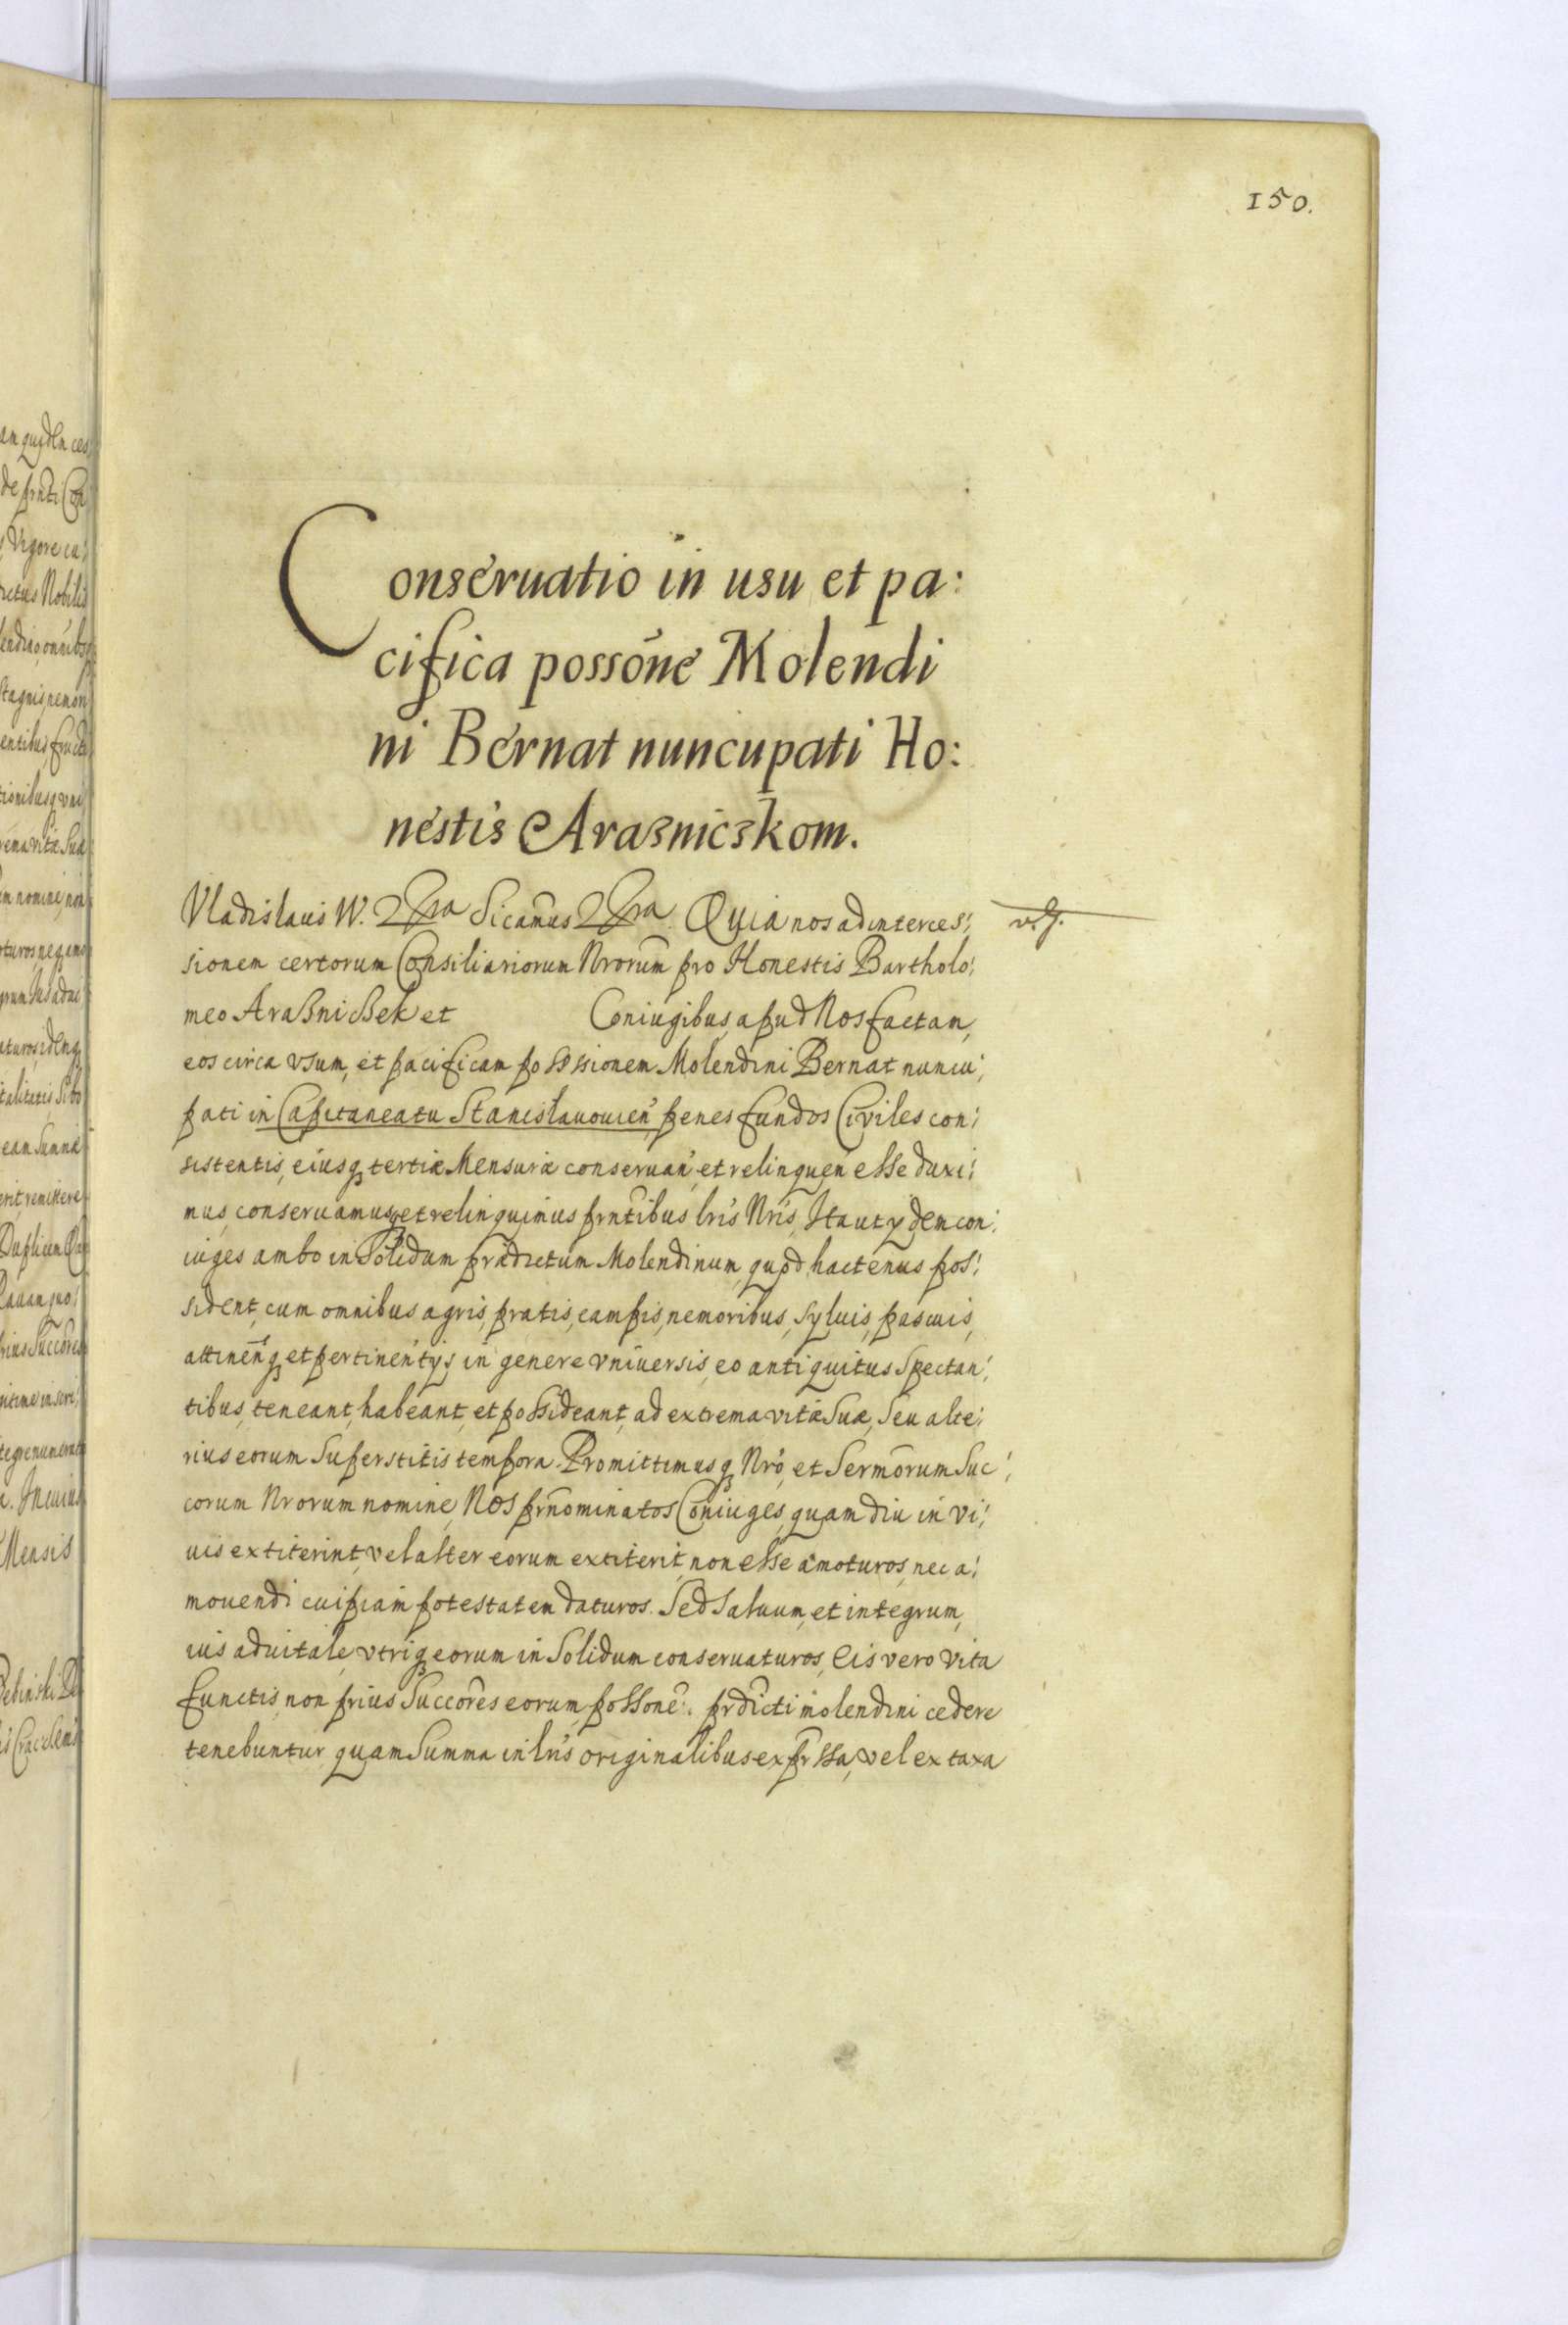 150.
Conseruatio in usu et pa:
cifica possõne Molendi
ni Bernat nuncupati Ho:
nestis Araßniczkom.
Vladislaus IV. Sicamus Quia nos ad interces:
sionem certorum Consiliariorum Nrorum pro Honestis Bartholo:
meo Araßniczek et Coniugibus, apud Nos factam,
eos circa vsum, et pacificam possessionem Molendini Bernat nuncu:
pati in Capitaneatu Stanislauouien penes fundos Civiles con:
sistentis, eiusq tertiæ Mensuræ conseruan, et relinquen esse duxi:
mus, conseruamusq et relinquimus pñtibus lris Nris, Ita ut ydem con:
iuges ambo in Solidum prædictum Molendinum, quod hactenus pos:
sident, cum omnibus agris, pratis, campis, nemoribus, syluis, pascuis,
attinenq et pertinentys in genere vniuersis, eo antiquitus spectan:
tibus, teneant, habeant, et possideant, ad extrema vitæ Suæ, seu alte:
rius eorum Superstitis tempora. Promittimusq Nro, et Sermorum Suc:
corum Nrorum nomine, Nos prnominatos Coniuges, quam diu in vi:
uis extiterint, vel alter eorum extiterit, non esse amoturos, nec a:
mouendi cuipiam potestatem daturos. Sed saluum, et integrum,
ius aduitale, vtriq eorum in Solidum conseruaturos, Eis vero vita
functis, non prius Succores eorum possone: prdicti molendini cedere
tenebuntur, quam Summa in lris originalibus exprssa, vel ex taxa